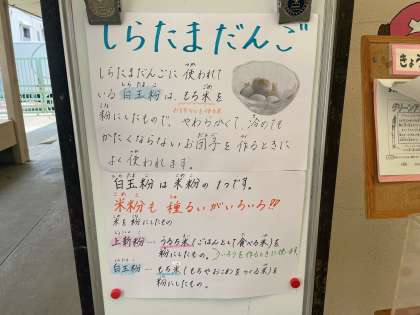 しらたまだんご
しらたまだんごに 使われて
いる 白玉粉は、もち米を
粉にしたもので、やわらかくて、冷めても
かたくならないお団子を作るときに
よく使われます。
白玉粉は米粉の1つです。
米粉も種るいがいろいろ!!!
米を粉にしたもの
上新粉…うるち米(ごはんとして食べる米)を
粉にしたもの。
白玉粉…もち米(もちやおこわをつくる米)を
粉にしたもの。
きょう